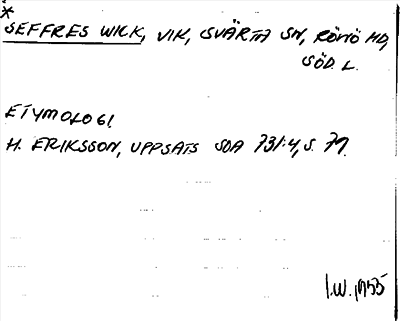 *
SEFFRES WICK, VIK, SVÄRTA SN, RÖNÖ HD,
SÖD. L.
ETYMOLOGI,
H. ERIKSSON, UPPSATS SOA 731:4, S. 79.
I.W. 1955